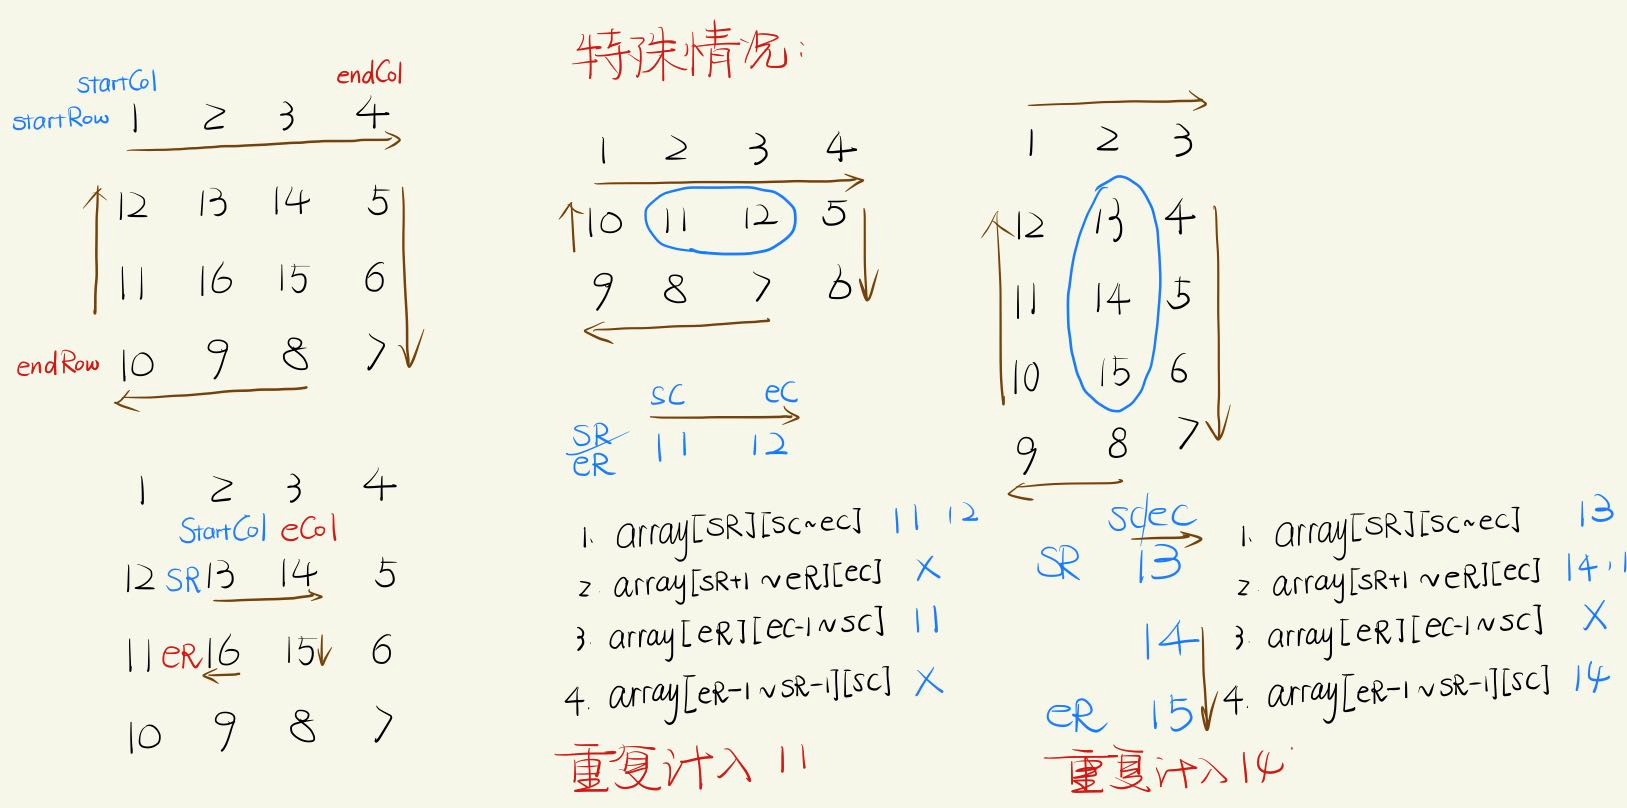 startCol endCol
startRow 1 2 3 4
12 13 14 5
11 16 15 6
endRow 10 9 8 7
1 2 3 4
StartCol eCol
12 SR 13 14 5
11 eR 16 15 6
10 9 8 7
特殊情况:
1 2 3 4
10 11 12 5
9 8 7 6
sc ec
SR/eR 11 12
1. array[SR][sc~ec] 11 12
2. array[SR+1~eR][ec] X
3. array[eR][ec-1~sc] 11
4. array[eR-1~SR-1][sc] X
重复计入 11
1 2 3
12 13 4
11 14 5
10 15 6
9 8 7
sc/ec
SR 13
14
eR 15
1. array[SR][sc~ec] 13
2. array[SR+1~eR][ec] 14,
3. array[eR][ec-1~sc] X
4. array[eR-1~SR-1][sc] 14
重复计入14